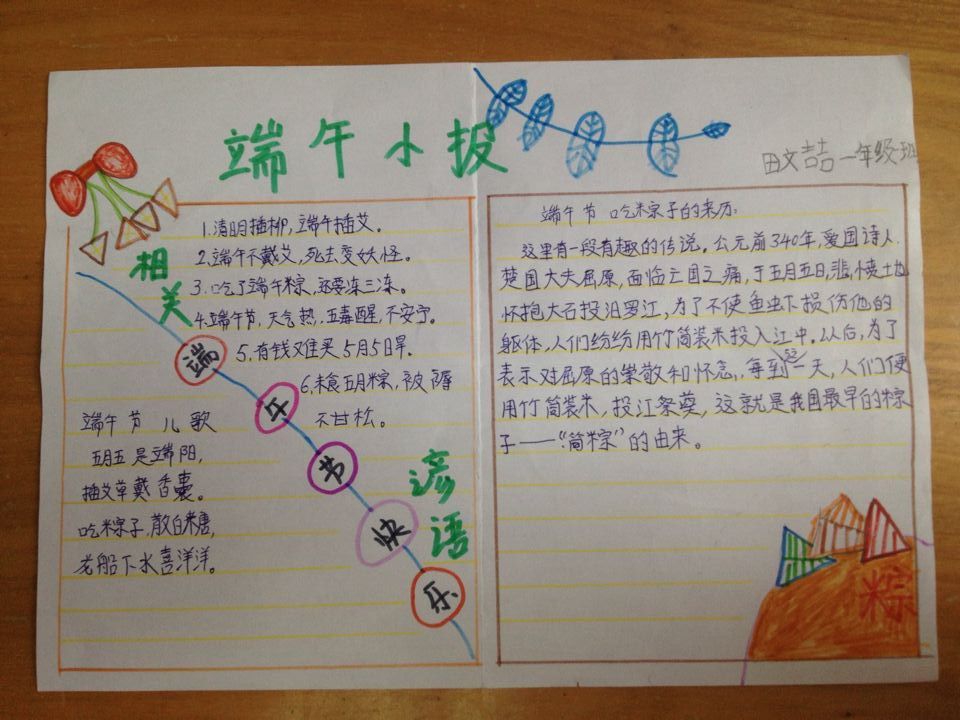 端午小报
田文喆 一年级1班
相关
谚语
1.清明插柳,端午插艾。
2.端午不戴艾,死去变妖怪。
3.吃了端午粽,还要冻三冻。
4.端午节,天气热,五毒醒,不安宁。
5.有钱难买5月5日旱。
6.未食五月粽,被褥
不甘松。
端午节快乐
端午节 儿歌
五月五是端阳,
插艾草戴香囊。
吃粽子,散白糖,
龙船下水喜洋洋。
端午节 吃粽子的来历:
这里有一段有趣的传说。公元前340年,爱国诗人、
楚国大夫屈原,面临亡国之痛,于五月五日,悲愤土地
怀抱大石投汨罗江,为了不使鱼虫下损伤他的
躯体,人们纷纷用竹筒装米投入江中。从后,为了
表示对屈原的崇敬和怀念,每到这一天,人们便
用竹筒装米,投江祭奠,这就是我国最早的粽
子——“筒粽”的由来。
粽